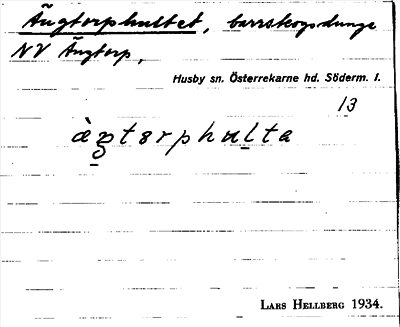 Ängtorphultet, barrskogsdunge
NV Ängtorp,
Husby sn. Österrekarne hd. Söderm. l.
13
LARS HELLBERG 1934.